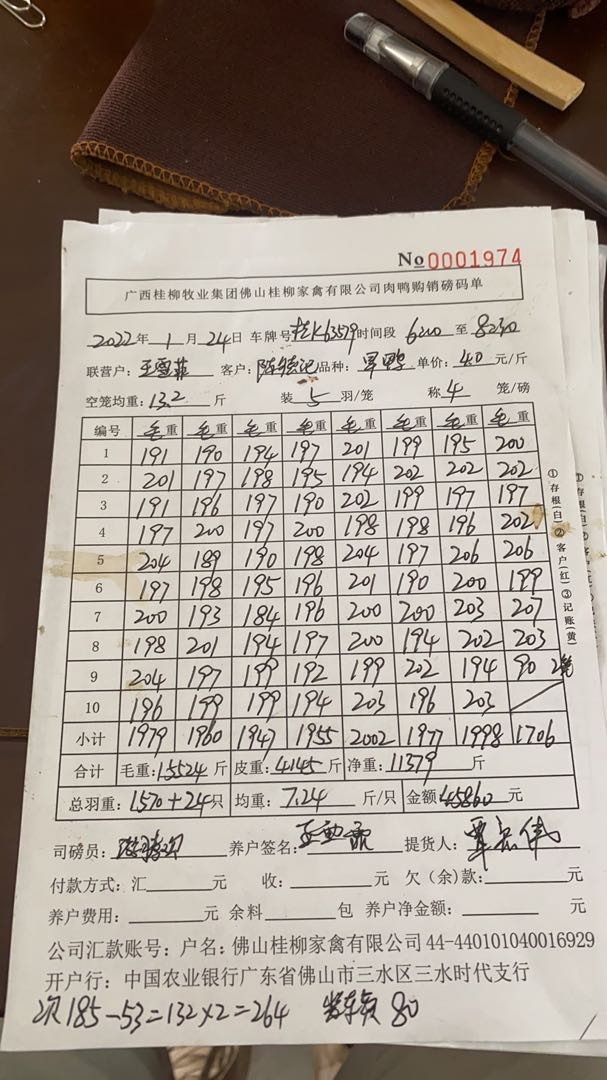 No 0001974
广西桂柳牧业集团佛山桂柳家禽有限公司肉鸭购销磅码单
2022年 1月 24日 车牌号桂K63579时间段 6:20 至 8:30
联营户: 王雪菲 客户: 陈德记 品种: 旱鸭 单价: 4.0 元/斤
空笼均重: 13.2 斤 装 5 羽/笼 称 4 笼/磅
编号 毛重 毛重 毛重 毛重 毛重 毛重 毛重 毛重
1 191 190 194 197 201 199 195 200
2 201 197 198 195 194 202 202 202
3 191 196 197 190 202 199 197 197
4 197 200 197 200 198 198 196 202
5 204 189 190 198 204 197 206 206
6 197 198 195 196 201 190 200 199
7 200 193 184 196 200 200 203 207
8 198 201 194 197 200 194 202 203
9 204 197 199 192 199 202 194 90 2笼
10 196 199 199 194 203 196 203
小计 1979 1960 1947 1955 2002 1977 1998 1706
合计 毛重: 15524 斤 皮重: 4145 斤 净重: 11379 斤
总羽重: 1570+24 只 均重: 7.24 斤/只 金额 45860 元
①存根(白) ②客户(红) ③记账(黄)
司磅员: 养户签名: 提货人:
付款方式: 汇 元 收: 元 欠(余)款: 元
养户费用: 元 余料 包 养户净金额: 元
公司汇款账号: 户名: 佛山桂柳家禽有限公司 44-440101040016929
开户行: 中国农业银行广东省佛山市三水区三水时代支行
次 185-53=132×2=264 80